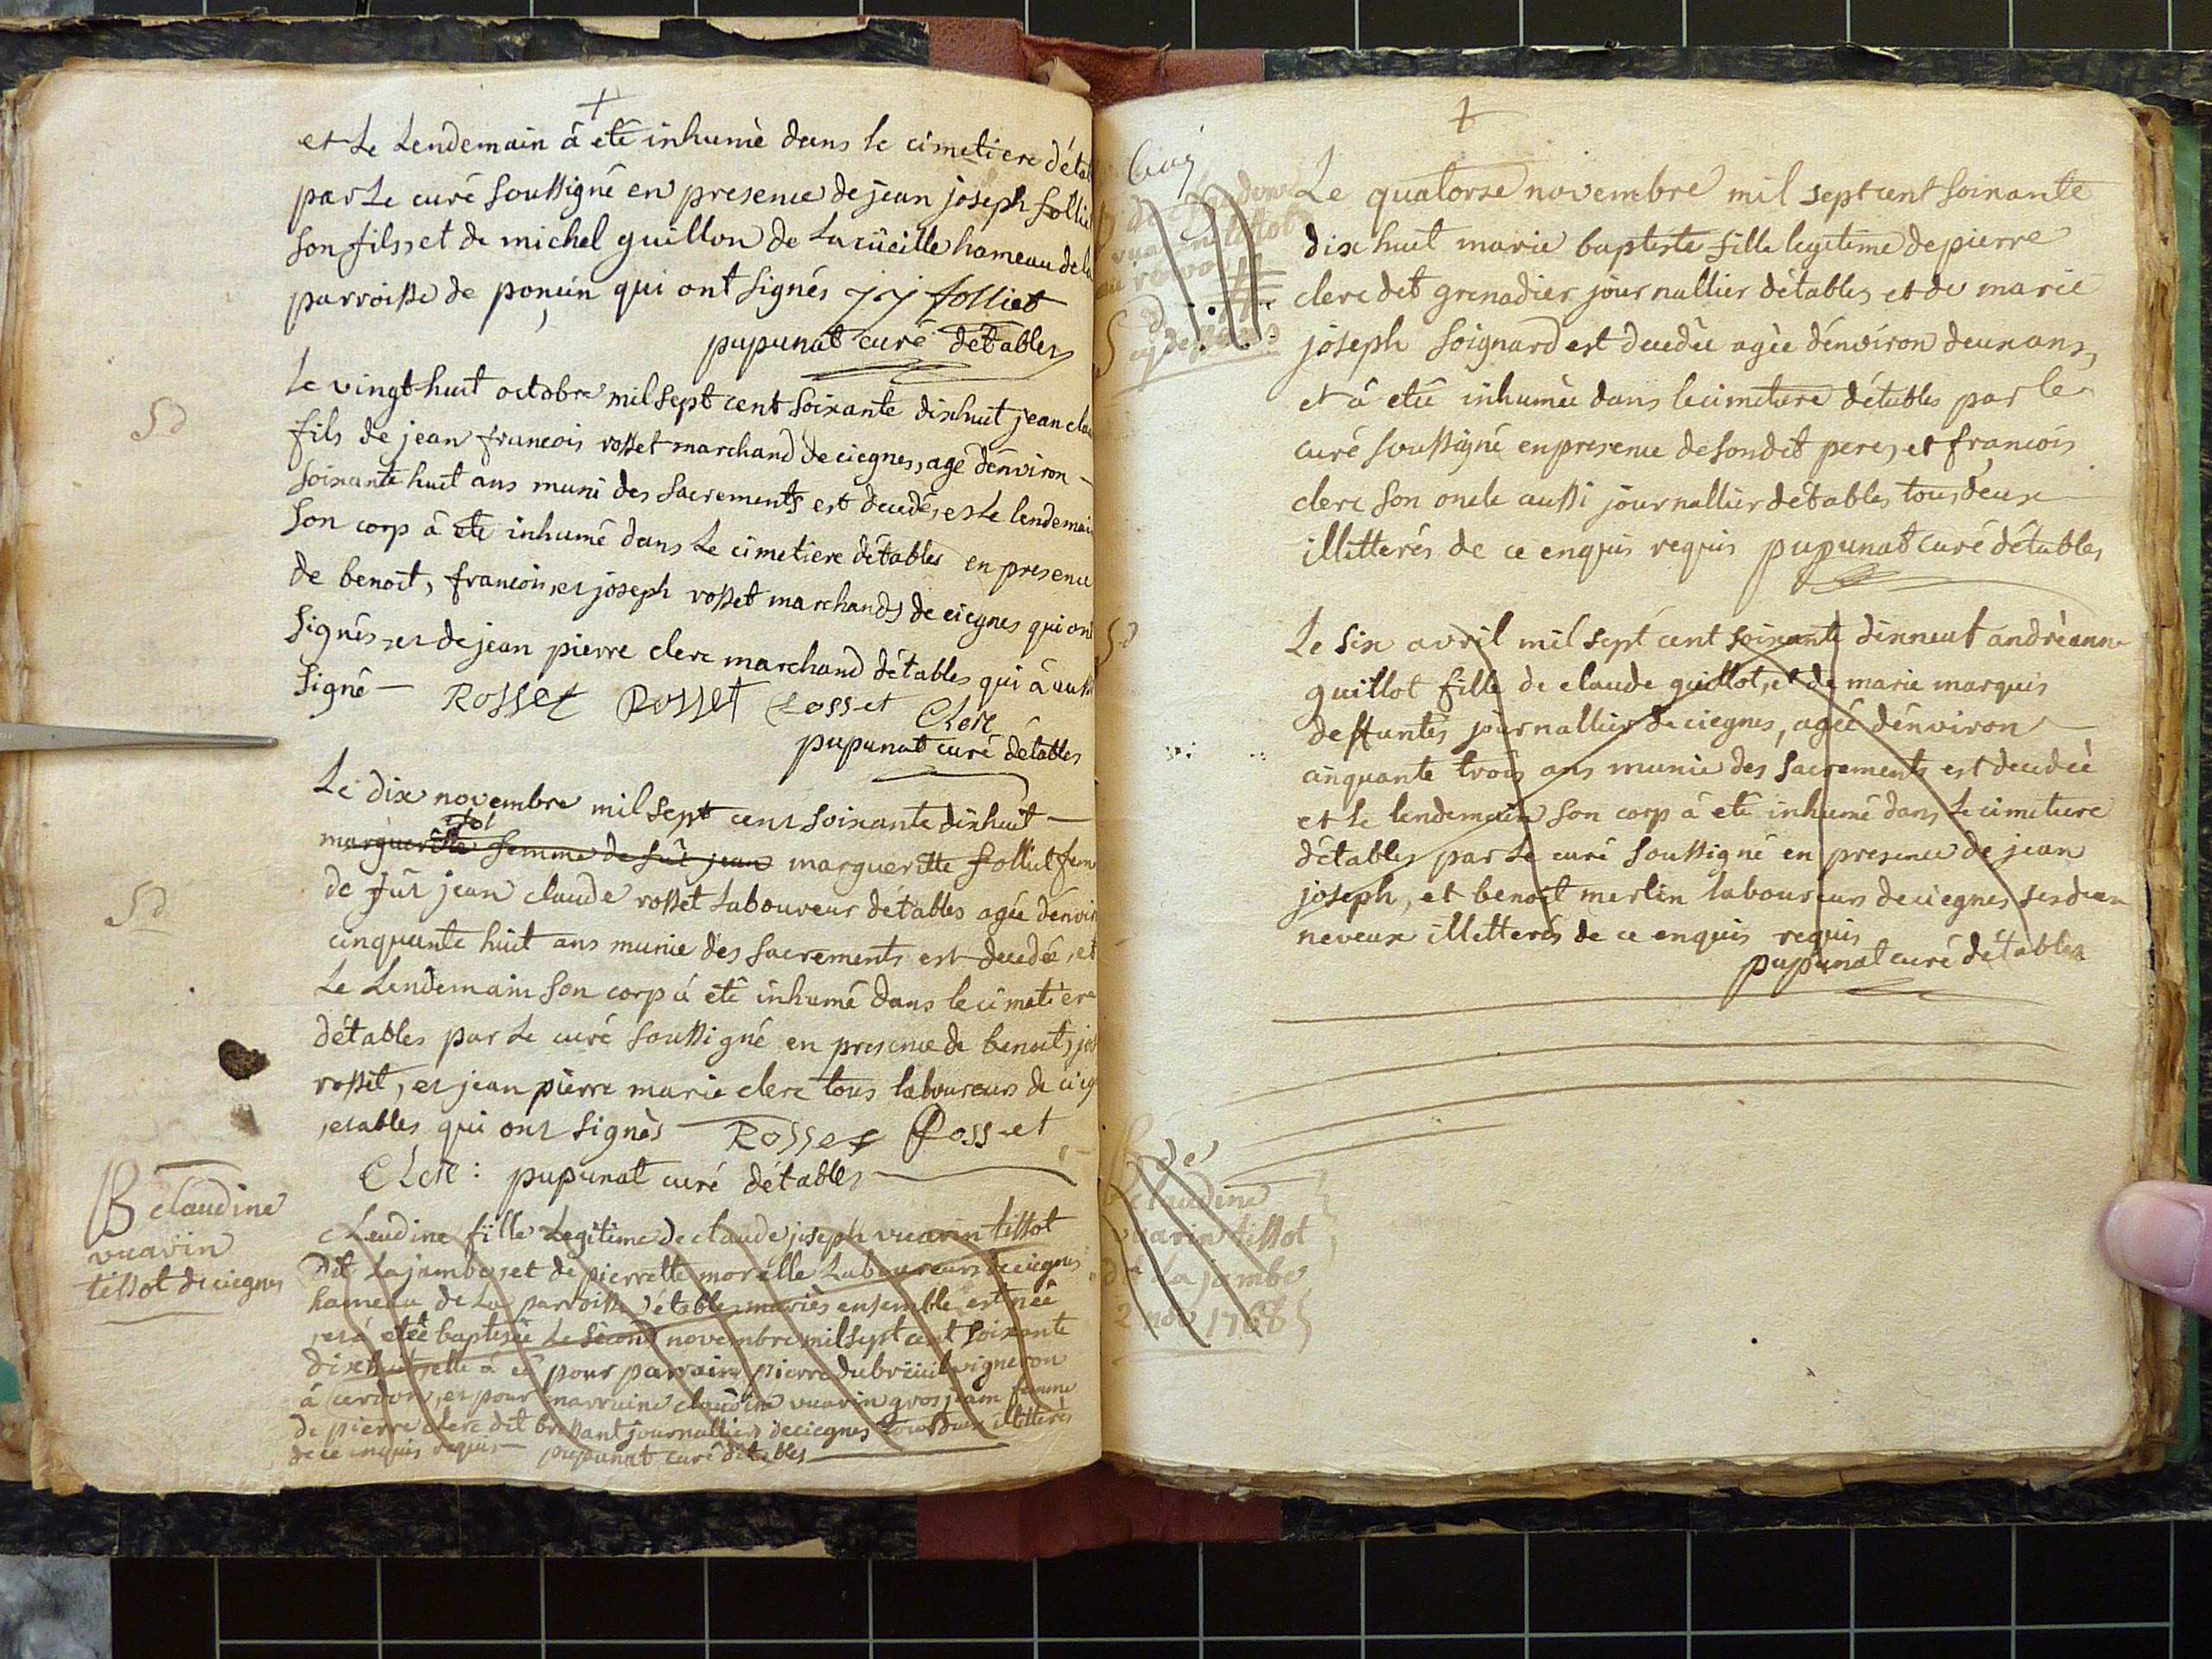 et Le Lendemain à eté inhumé dans le cimetiere d'étab
par Le curé soussigné en presence de jean joseph follie
son fils, et de michel guillon de La cüeille hameau de la
parroisse de poncin qui ont signés jj folliet
pupunat curé détables
le vingt huit octobre mil sept cent soixante dixhuit jean clau
fils de jean francois rosset marchand de ciegnes, agé dénviron
soixante huit ans muni des sacrements est decedé, et Le lendemain
son corp à eté inhumé dans Le cimetiere détables en presence
de benoit, francois, et joseph rosset marchands de ciegnes qui ont
signés, et de jean pierre clerc marchand détables qui à aussi
signé Rosset Rosset Rosset Clerc
pupunat curé détables
Sd
Le dix novembre mil sept cent soixante dixhuit
margueritte femme de fût jean margueritte folliet fem
de fût jean claude rosset Laboureur détables agée dénvir
cinquante huit ans munie des sacrements est decedée, et
Le Lendemain son corp à eté inhumé dans le cimetiere
détables par Le curé soussigné en presence de benoit, jos
rosset, et jean pierre marie clerc tous laboureurs de cieg
, etables qui ont signés Rosset Rosset
Clerc : pupunat curé détables
Sd
B claudine
vuarin
tissot de ciegnes
cLaudine fille Legitime de claude joseph vuarin tissot
dit Lajambe, et de pierrette morelle Laboureurs de ciegnes
hameau de La parroisse détables mariés ensemble est née
, et à eteé baptisée Le second novembre mil sept cent soixante
dixhuit, elle à eû pour parrain pierre dubreüil vigneron
à cerdon, et pour marraine claudine vuarin gros jean femme
de pierre clerc dit bressant journallier de ciegnes tous deux illitterés
de ce enquis requis pupunat curé détables
Le quatorse novembre mil sept cent soixante
dix huit marie baptiste fille legitime de pierre
clerc dit grenadier journallier détables, et de marie
joseph soignard est decedée agée dénviron deux ans,
et à etée inhumée dans le cimetiere détables par le
curé soussigné en presence de son dit pere, et francois
clerc son oncle aussi journallier détables tous deux
illitterés de ce enquis requis pupunat curé détables
Sd
Le six avril mil sept cent soixante dixneuf andréanne
guillot fille de claude guillot, et de marie marquis
deffuntés journallier de ciegnes, agée dénviron
cinquante trois ans munie des sacrements est decedée
et le lendemain son corp à eté inhumé dans Le cimetiere
détables par Le curé soussigné en presence de jean
joseph, et benoit merlin laboureurs de ciegnes ses deux
neveux illitterés de ce enquis requis
pupunat curé détables
claudine
vuarin tissot
dt La jambe
2 nov 1768